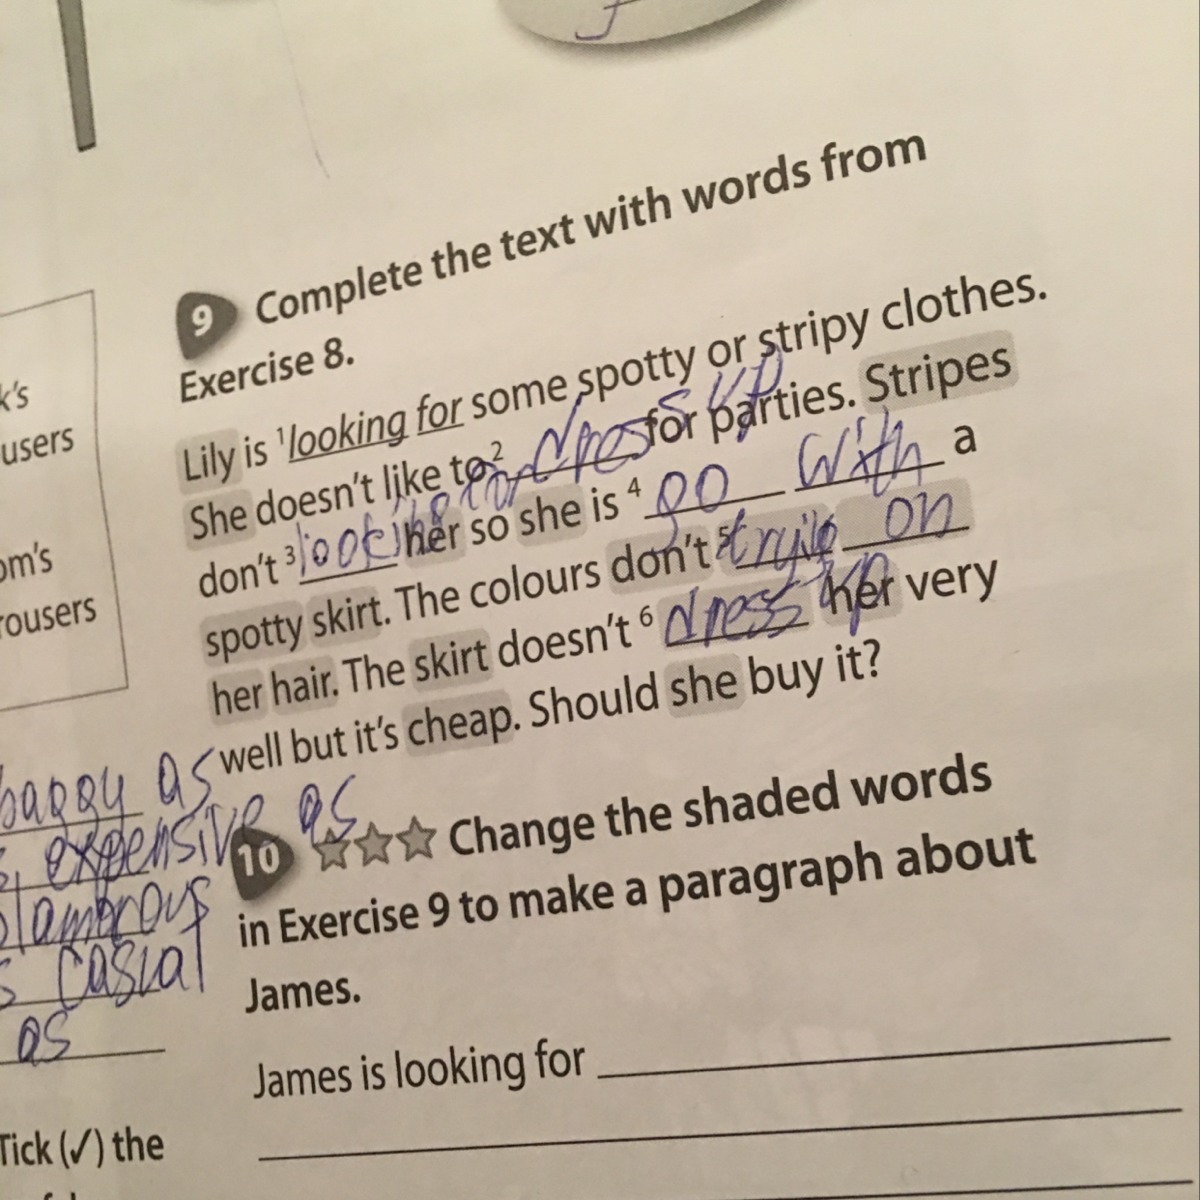 9 Complete the text with words from
Exercise 8.
Lily is 1 looking for some spotty or stripy clothes.
She doesn't like to 2 dress up for parties. Stripes
don't 3 looking for her so she is 4 go with a
spotty skirt. The colours don't 5 trying on
her hair. The skirt doesn't 6 dress up her very
well but it's cheap. Should she buy it?
10 Change the shaded words
in Exercise 9 to make a paragraph about
James.
James is looking for
k's
users
om's
rousers
baggy as
expensive as
glamorous
s casual
as
Tick (✓) the